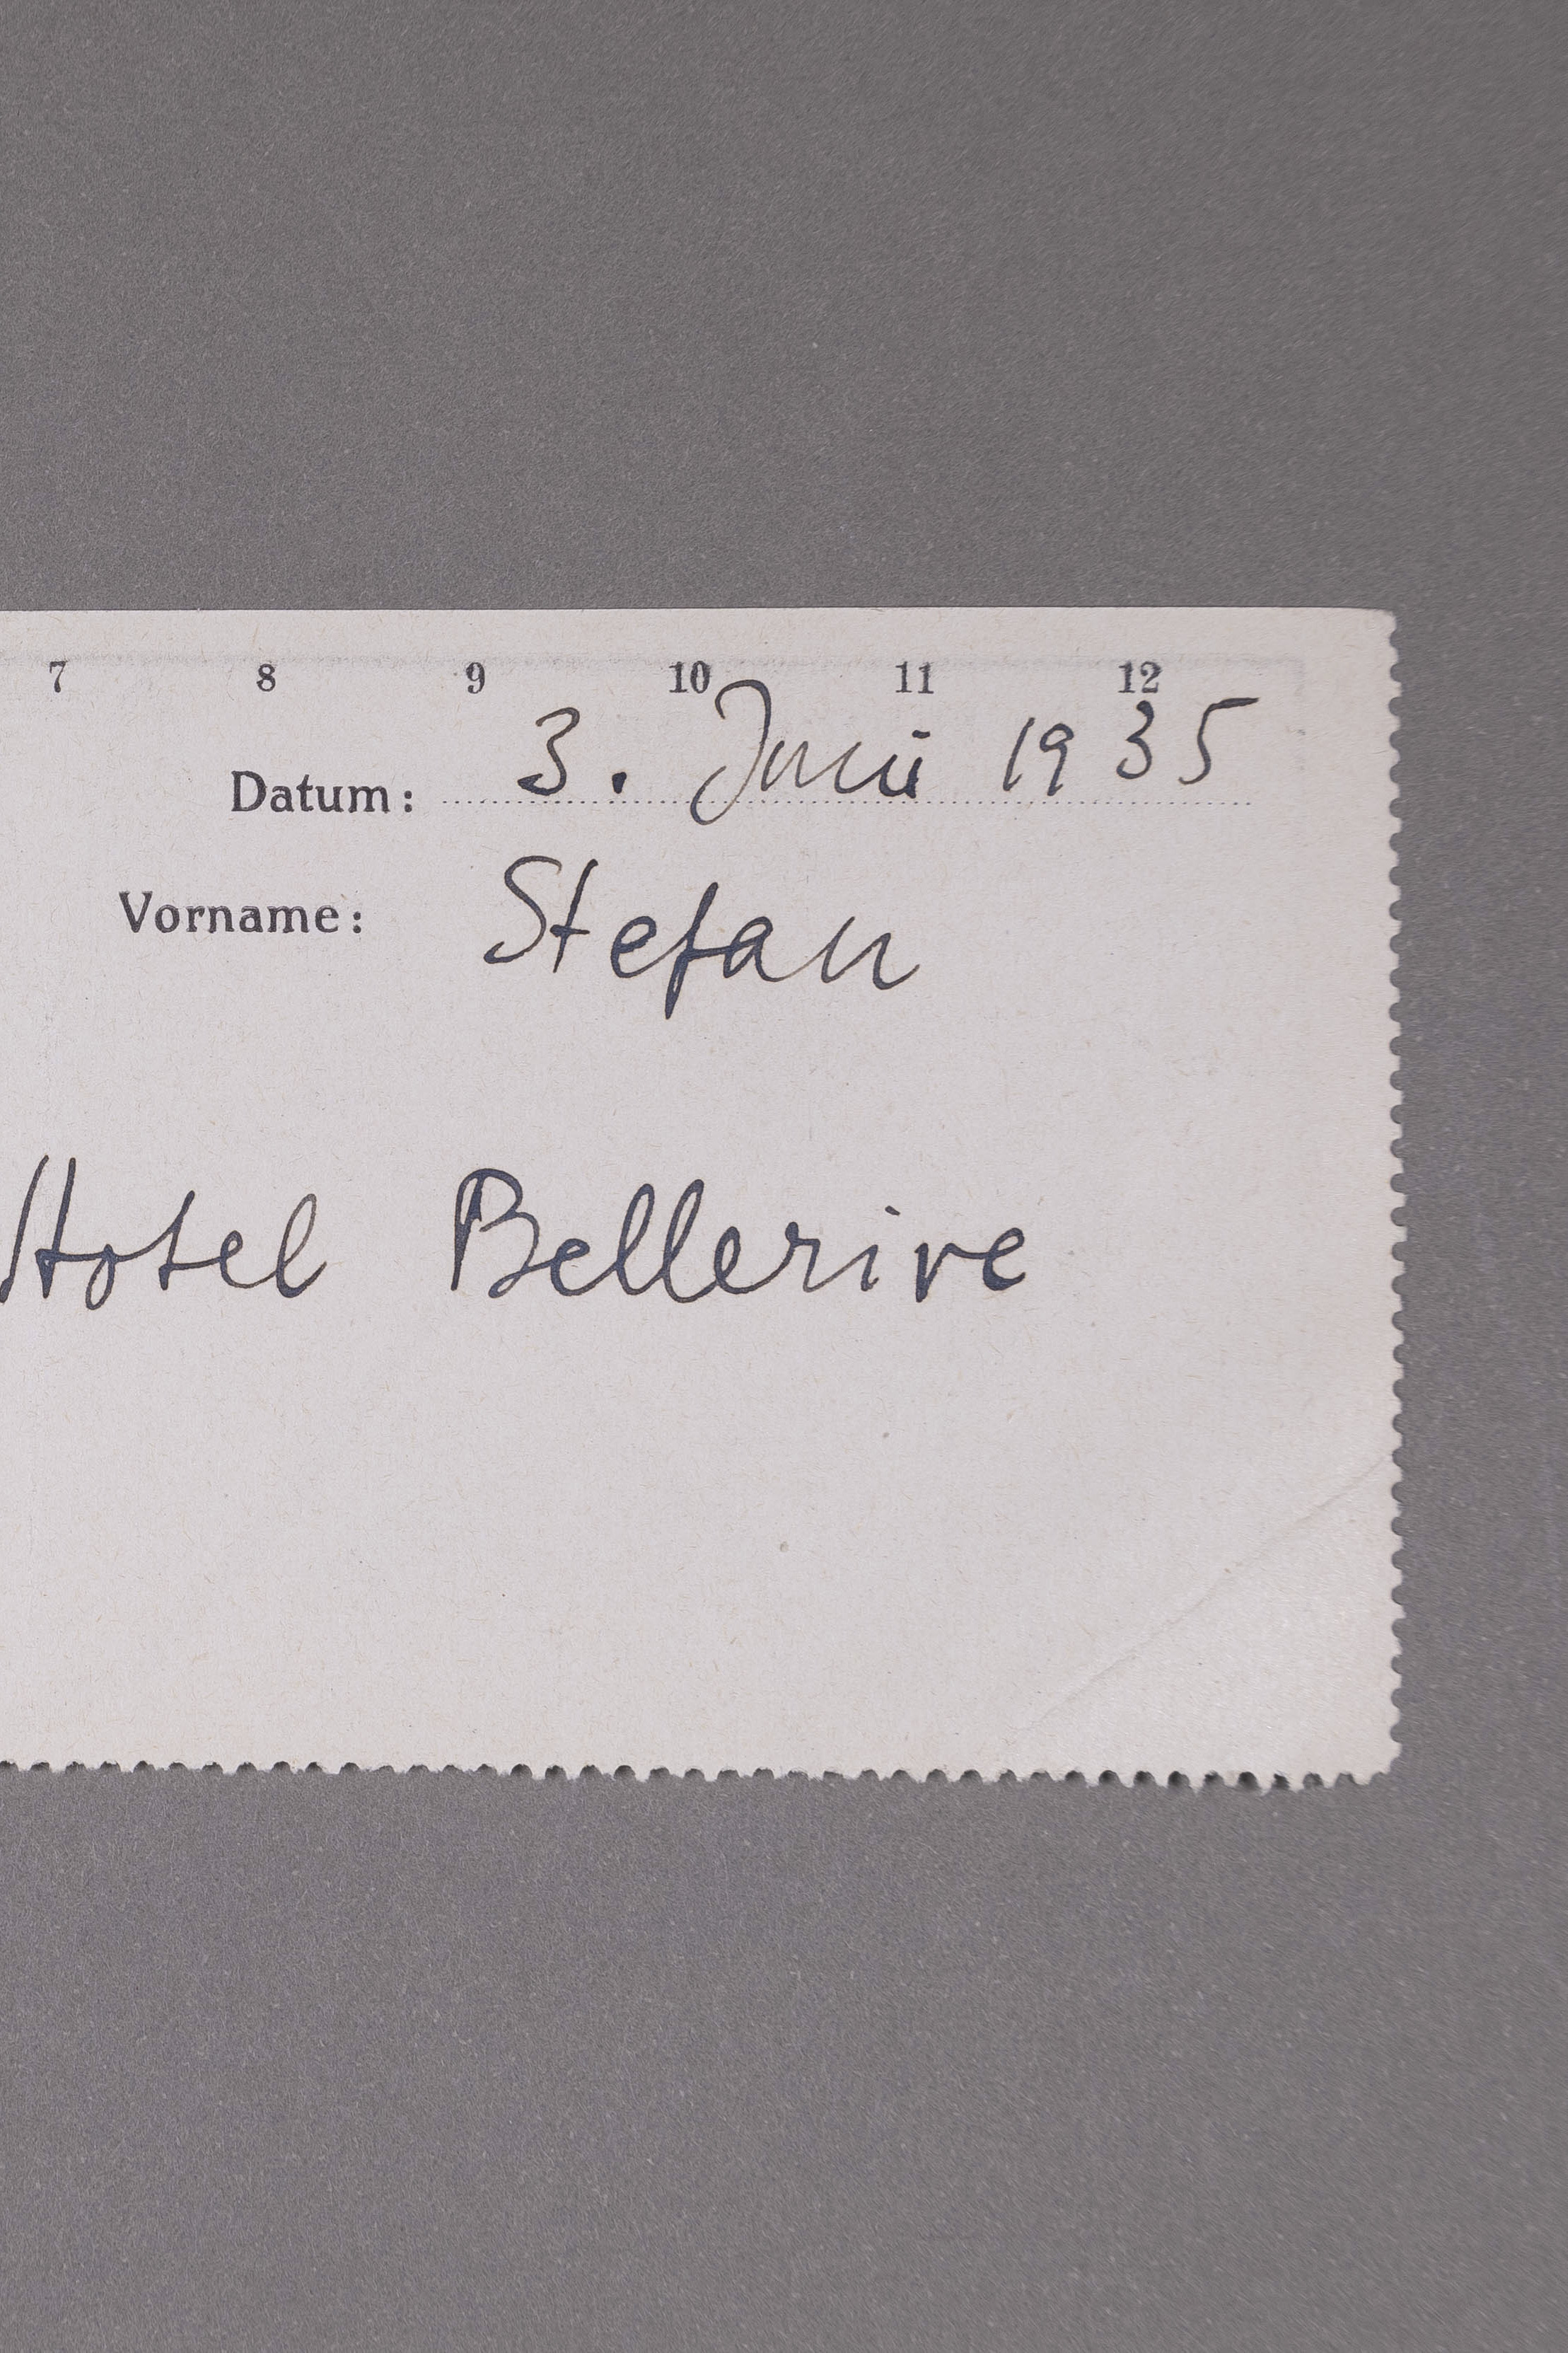 7 8 9 10 11 12
Datum: 3. Juni 1935
Vorname: Stefan
Hotel Bellerive